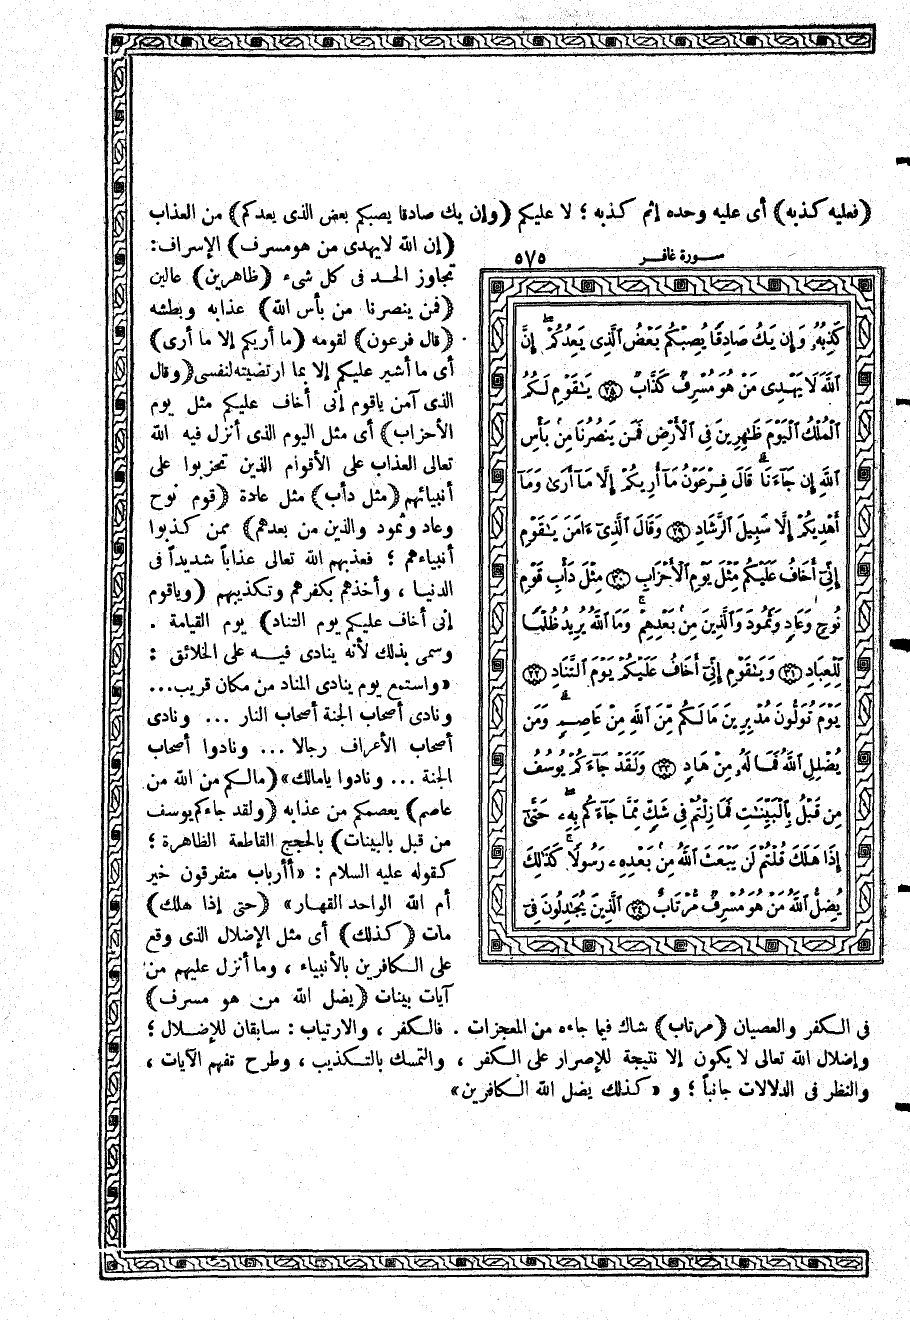 (فعليه كذبه) أى عليه وحده إثم كذبه ؛ لا عليكم (وإن يك صادقا يصبكم بعض الذى يعدكم) من العذاب
(إن الله لايهدى من هومسرف) الإسراف:
تجاوز الحد فى كل شىء (ظاهرين) عالين
(فمن ينصرنا من بأس الله) عذابه وبطشه
(قال فرعون) لقومه (ما أريكم إلا ما أرى)
أى ما أشير عليكم إلا بما ارتضيته لنفسى (وقال
الذى آمن ياقوم إنى أخاف عليكم مثل يوم
الأحزاب) أى مثل اليوم الذى أنزل فيه الله
تعالى العذاب على الأقوام الذين تحزبوا على
أنبيائهم (مثل دأب) مثل عادة (قوم نوح
وعاد وثمود والذين من بعدهم) ممن كذبوا
أنبياءهم ؛ فعذبهم الله تعالى عذاباً شديداً فى
الدنيا ، وأخذهم بكفرهم وتكذيبهم (وياقوم
إنى أخاف عليكم يوم التناد) يوم القيامة .
وسمى بذلك لأنه ينادى فيه على الخلائق :
«واستمع يوم يناد المناد من مكان قريب...
ونادى أصحاب الجنة أصحاب النار ... ونادى
أصحاب الأعراف رجالا ... ونادوا أصحاب
الجنة ... ونادوا يامالك» (مالكم من الله من
عاصم) يعصمكم من عذابه (ولقد جاءكم يوسف
من قبل بالبينات) بالحجج القاطعة الظاهرة ؛
كقوله عليه السلام : «أأرباب متفرقون خير
أم الله الواحد القهار» (حتى إذا هلك)
مات (كذلك) أى مثل الإضلال الذى وقع
على الكافرين بالأنبياء ، وما أنزل عليهم من
آيات بينات (يضل الله من هو مسرف)
سورة غافر
٥٧٥
كَذِبُهُۥ وَإِن يَكُ صَادِقًا يُصِبْكُم بَعْضُ ٱلَّذِى يَعِدُكُمْ ۖ إِنَّ
ٱللَّهَ لَا يَهْدِى مَنْ هُوَ مُسْرِفٌ كَذَّابٌ ﴿٢٨﴾ يَٰقَوْمِ لَكُمُ
ٱلْمُلْكُ ٱلْيَوْمَ ظَٰهِرِينَ فِى ٱلْأَرْضِ فَمَن يَنصُرُنَا مِنۢ بَأْسِ
ٱللَّهِ إِن جَآءَنَا ۚ قَالَ فِرْعَوْنُ مَآ أُرِيكُمْ إِلَّا مَآ أَرَىٰ وَمَآ
أَهْدِيكُمْ إِلَّا سَبِيلَ ٱلرَّشَادِ ﴿٢٩﴾ وَقَالَ ٱلَّذِىٓ ءَامَنَ يَٰقَوْمِ
إِنِّىٓ أَخَافُ عَلَيْكُم مِّثْلَ يَوْمِ ٱلْأَحْزَابِ ﴿٣٠﴾ مِثْلَ دَأْبِ قَوْمِ
نُوحٍ وَعَادٍ وَثَمُودَ وَٱلَّذِينَ مِنۢ بَعْدِهِمْ ۚ وَمَا ٱللَّهُ يُرِيدُ ظُلْمًا
لِّلْعِبَادِ ﴿٣١﴾ وَيَٰقَوْمِ إِنِّىٓ أَخَافُ عَلَيْكُمْ يَوْمَ ٱلتَّنَادِ ﴿٣٢﴾
يَوْمَ تُوَلُّونَ مُدْبِرِينَ مَا لَكُم مِّنَ ٱللَّهِ مِنْ عَاصِمٍ ۗ وَمَن
يُضْلِلِ ٱللَّهُ فَمَا لَهُۥ مِنْ هَادٍ ﴿٣٣﴾ وَلَقَدْ جَآءَكُمْ يُوسُفُ
مِن قَبْلُ بِٱلْبَيِّنَٰتِ فَمَا زِلْتُمْ فِى شَكٍّ مِّمَّا جَآءَكُم بِهِۦ ۖ حَتَّىٰٓ
إِذَا هَلَكَ قُلْتُمْ لَن يَبْعَثَ ٱللَّهُ مِنۢ بَعْدِهِۦ رَسُولًا ۚ كَذَٰلِكَ
يُضِلُّ ٱللَّهُ مَنْ هُوَ مُسْرِفٌ مُّرْتَابٌ ﴿٣٤﴾ ٱلَّذِينَ يُجَٰدِلُونَ فِىٓ
فى الكفر والعصيان (مرتاب) شاك فيما جاءه من المعجزات . فالكفر ، والارتياب : سابقان للإضلال ؛
وإضلال الله تعالى لا يكون إلا نتيجة للإصرار على الكفر ، والتمسك بالتكذيب ، وطرح تفهم الآيات ،
والنظر فى الدلالات جانباً ؛ و «كذلك يضل الله الكافرين»